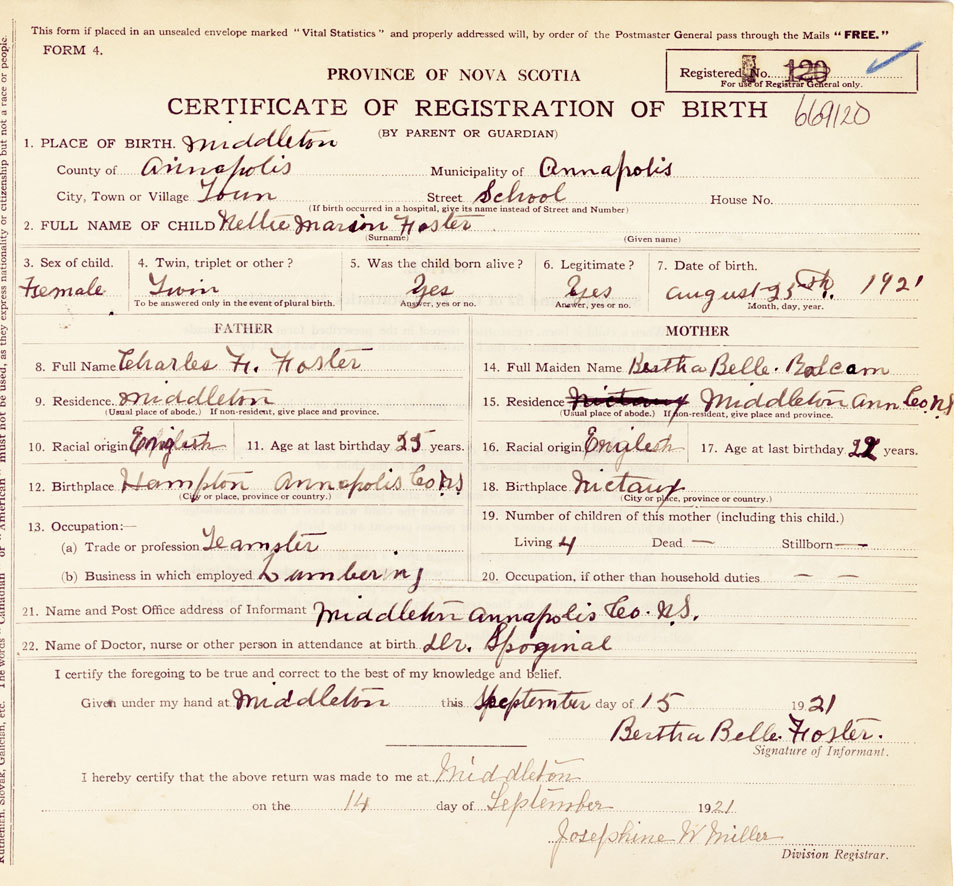 This form if placed in an unsealed envelope marked "Vital Statistics" and properly addressed will, by order of the Postmaster General pass through the Mails "FREE."
FORM 4.
PROVINCE OF NOVA SCOTIA
Registered No. 120
For use of Registrar General only.
CERTIFICATE OF REGISTRATION OF BIRTH
669120
(BY PARENT OR GUARDIAN)
1. PLACE OF BIRTH. Middleton
County of Annapolis Municipality of Annapolis
City, Town or Village Town Street School House No.
(If birth occurred in a hospital, give its name instead of Street and Number)
2. FULL NAME OF CHILD Nellie Marion Foster
(Surname) (Given name)
3. Sex of child. 4. Twin, triplet or other? 5. Was the child born alive? 6. Legitimate? 7. Date of birth.
Female Twin Yes Yes August 25th. 1921
To be answered only in the event of plural birth. Answer, yes or no. Answer, yes or no. Month, day, year.
FATHER
8. Full Name Charles H. Foster
9. Residence. Middleton
(Usual place of abode.) If non-resident, give place and province.
10. Racial origin English 11. Age at last birthday 25 years.
12. Birthplace Hampton Annapolis Co N.S
(City or place, province or country.)
13. Occupation:—
(a) Trade or profession Teamster
(b) Business in which employed Lumbering
MOTHER
14. Full Maiden Name Bertha Belle. Balcam
15. Residence Nictaux Middleton Ann Co. N.S
(Usual place of abode.) If non-resident, give place and province.
16. Racial origin English 17. Age at last birthday 22 years.
18. Birthplace Nictaux
(City or place, province or country.)
19. Number of children of this mother (including this child.)
Living 4 Dead — Stillborn —
20. Occupation, if other than household duties — —
21. Name and Post Office address of Informant Middleton Annapolis Co. N.S.
22. Name of Doctor, nurse or other person in attendance at birth. Dr. Sponinal
I certify the foregoing to be true and correct to the best of my knowledge and belief.
Given under my hand at Middleton this September day of 15 1921
Bertha Belle. Foster.
Signature of Informant.
I hereby certify that the above return was made to me at Middleton
on the 14 day of September 1921
Josephine W Miller
Division Registrar.
Ruthenian, Slovak, Galician, etc. The words "Canadian" or "American" must not be used, as they express nationality or citizenship but not a race or people.